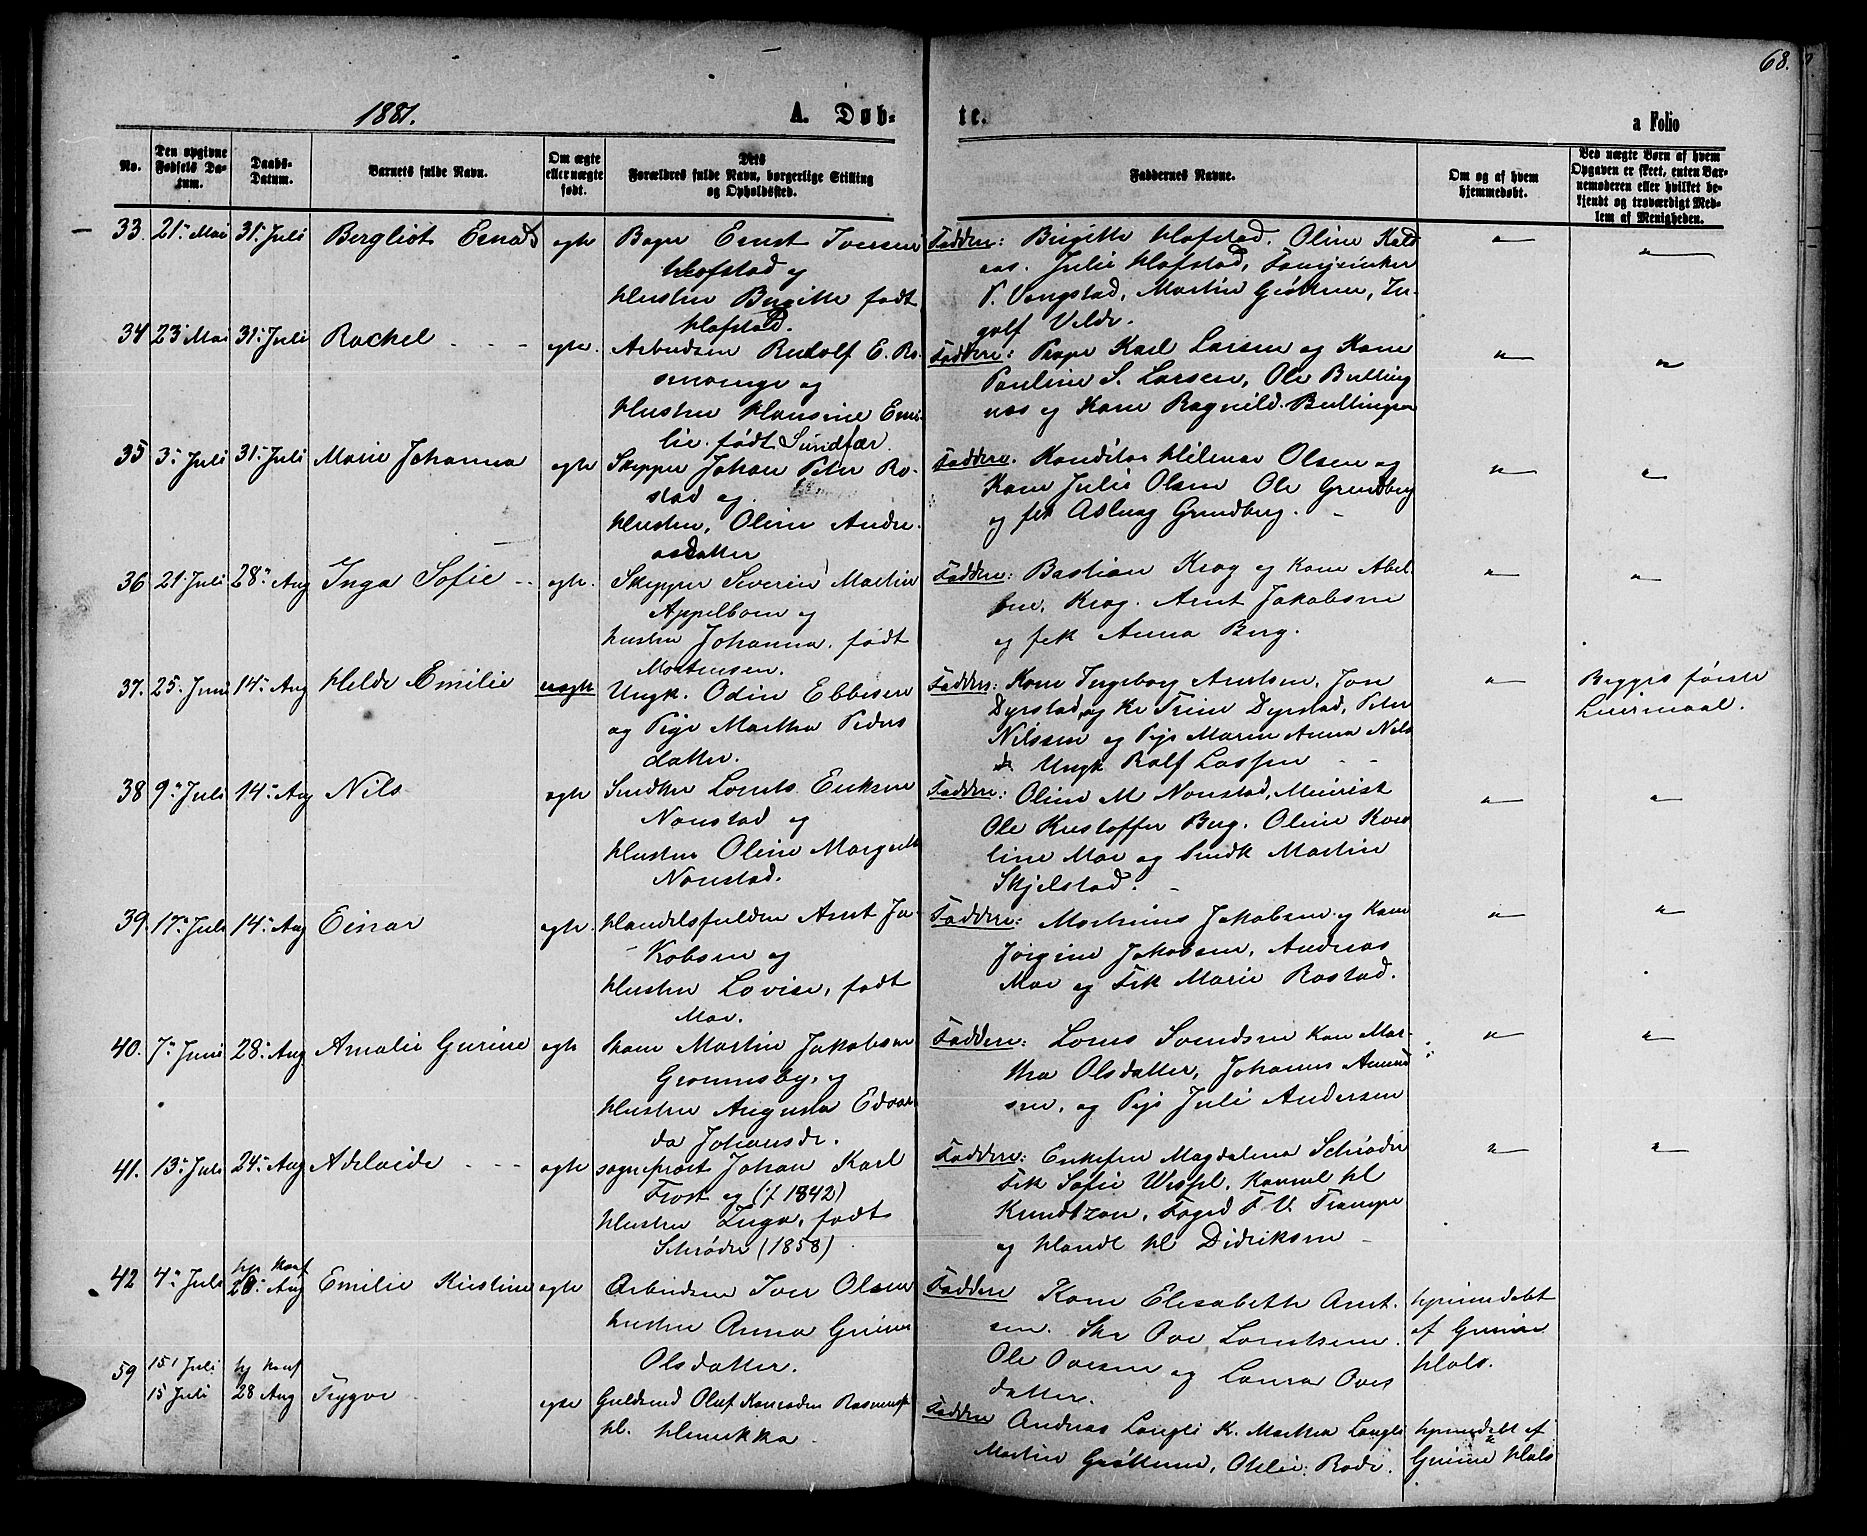 68.
1881.
A. Døb-
te.
a Folio
No.
Den opgivne Fødsels Datum.
Daabs-Datum.
Barnets fulde Navn.
Om ægte eller uægte født.
Dets Forældres fulde Navn, borgerlige Stilling og Opholdssted.
Faddernes Navne.
Om og af hvem hjemmedøbt.
Ved uægte Børn af hvem Opgaven er skeet, enten Barnemoderen eller hvilket bekjendt og troværdigt Medlem af Menigheden.
33. 21. Mai 31. Juli Bergliot egte Bager Ernst Iversen
Hofstad og
Hustru Birgitte født
Hofstad.
Faddere: Birgitte Hofstad. Oline Kald
aas. Julie Hofstad,
P. Vengstad, Martin Grøttum, In-
golf Velde.
34 23 Mai 31. Juli Rachel egte. Arbeidsm Rudolf E. Ro-
smoenge og
Hustru Hansine Emi-
lie. født Sundfær
Faddere: Karl Larsen og Kone
Pauline S. Larsen, Ole Bulling
naas og Kone Ragnild Bullingna
35 3. Juli 31. Juli Marie Johanna egte Skipper Johan Peter Ro-
stad og
Hustru, Oline Andre-
asdatter
Faddere. Konditor Hilmar Olsen og
Kone Julie Olsen Ole Grundberg
og frk Aslaug Grundberg.
36 21 Juli 28. Aug Inga Sofie egte. Skipper Severin Martin
Appelbom og
hustru Johanna, født
Mortensen.
Faddere: Bastian Krog og Kone Abel-
ne, Krog. Arnt Jakobsen
og frk Anna Berg.
37. 25. Juni 14. Aug Helde Emilie uegte Ungk. Odin Ebbesen
og Pige Martha Peders
datter.
Faddere: Kone Ingeborg Arntsen, Jon
Dyrstad, og Ke Trine Dyrstad, Peter
Nilssen og Pige Maren Anna Nils
d. Ungk Rolf Lassen
Begges første
Leiermaal.
38 9. Juli 14. Aug Nils egte Snedker Lornts Eriksen
Nonstad og
Hustru Oline Margrete
Nonstad.
Faddere: Oline M Nonstad, Minrist
Ole Kristoffer Berg. Oline Karo
line Moe og Snedk Martin
Skjelstad.
39. 17. Juli 14. Aug Einar egte. Handelsfuldm Arnt Ja-
kobsen og
Hustru Lovise, født
Moe.
Faddere: Martinus Jakobsen og Kone
Jørgine Jakobsen, Andreas
Moe og Frk Marie Rostad.
40. 7. Juni 28. Aug Amalie Gurine egte Skom Martin Jakobsen
Gronnesby, og
Hustru Augusta Edvar
da Johansdr.
Faddere: Lorns Svendsen Kone Mar-
tha Olsdatter, Johannes Amund
sen, og Pige Juli Andersen
41. 13. Juli 24. Aug Adelaide egte sogneprest Johan Karl
Frost og (f 1842)
Hustru Inga, født
Schrøder (1858)
Faddere: Enkefru Magdalena Schrøder
Frk Sofie Wessel, Konsul Hl
Knudtzon, Foged F. V. Trampe
og Handl Hl Didriksen
42 4. Juli hj. Konf 28. Aug Emilie Kirstine egte Arbeidsm Iver Olsen
hustru Anna Gurine
Olsdatter.
Faddere Kone Elisabeth Arnt-
sen. Skr Ove Lorntsen.
Ole Ovesen og Laura Oves
datter.
hjemmedøbt
af Gurine
Hals.
59 151 Juli 15 Juli hj Konf 28 Aug Trygve egte Guldsmed Oluf Konradin Rasmussen
Hl. Henrikka
Faddere Andreas Langli K. Martha Langli
Martin Grøttum, Othlie Rode.
hjemmedøbt af
Gurine Hals